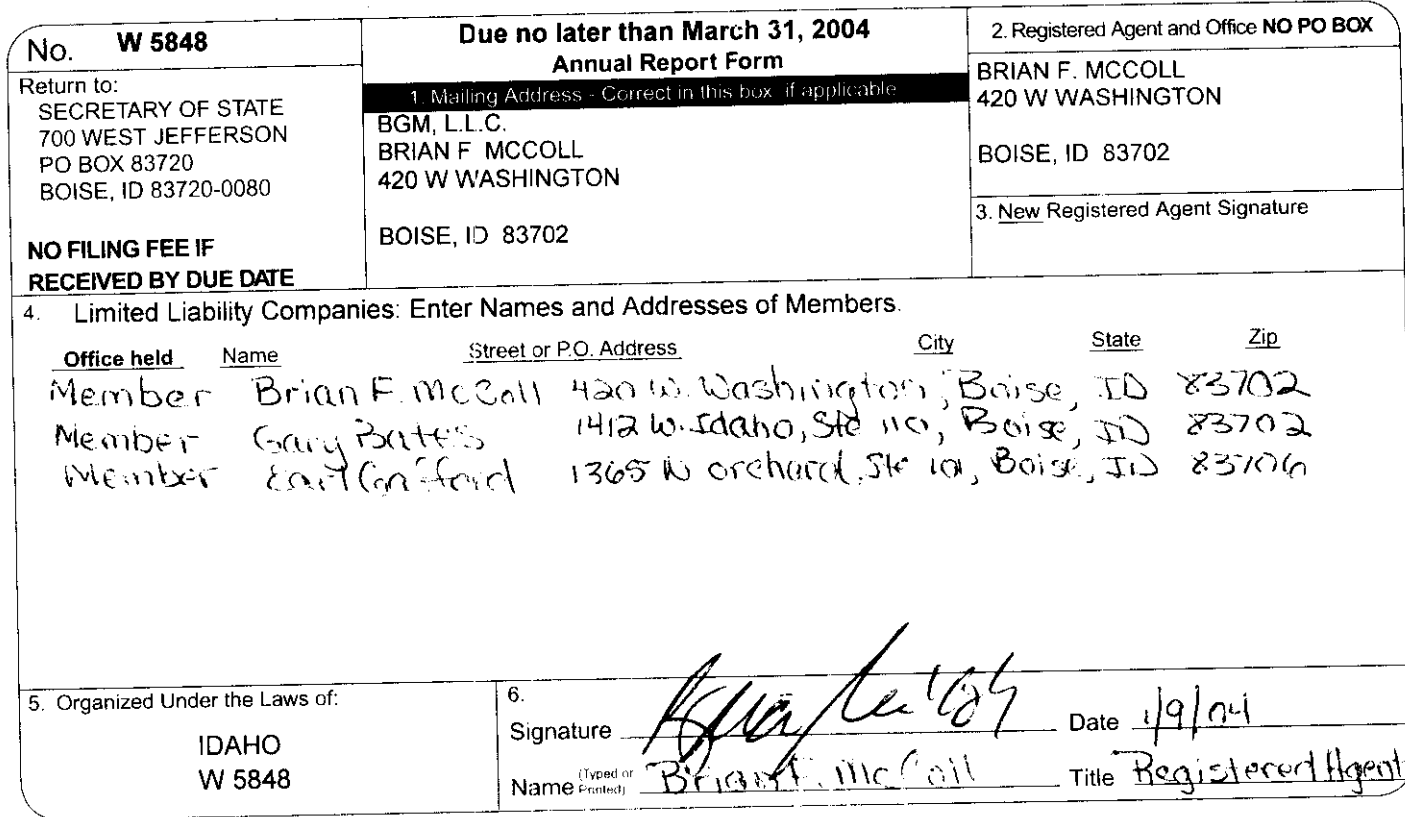 No. W 5848
Return to:
SECRETARY OF STATE
700 WEST JEFFERSON
PO BOX 83720
BOISE, ID 83720-0080
NO FILING FEE IF
RECEIVED BY DUE DATE
Due no later than March 31, 2004
Annual Report Form
1. Mailing Address - Correct in this box if applicable
BGM, L.L.C.
BRIAN F MCCOLL
420 W WASHINGTON
BOISE, ID 83702
2. Registered Agent and Office NO PO BOX
BRIAN F. MCCOLL
420 W WASHINGTON
BOISE, ID 83702
3. New Registered Agent Signature
4. Limited Liability Companies: Enter Names and Addresses of Members.
Office held Name Street or P.O. Address City State Zip
Member Brian F. McColl 420 W. Washington, Boise, ID 83702
Member Gary Bates 1412 W. Idaho, Ste 110, Boise, ID 83702
Member 1365 N Orchard, Ste 101, Boise, ID 83706
5. Organized Under the Laws of:
IDAHO
W 5848
6.
Signature Date 1/9/04
Name (Typed or Printed) Brian F. McColl Title Registered Agent